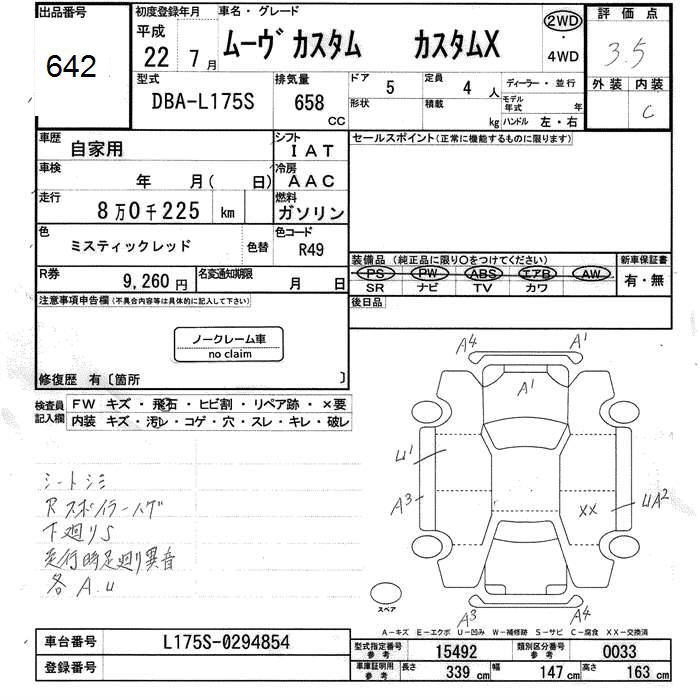 出品番号
642
初度登録年月
平成
22年 7月
車名・グレード
ムーヴ カスタム カスタムX
2WD
・
4WD
評価点
3.5
外装 内装
C
型式
DBA-L175S
排気量
658
CC
ドア
5
形状
定員
4人
積載
kg
ディーラー・並行
モデル年式 年
ハンドル 左・右
車歴
自家用
シフト
IAT
セールスポイント(正常に機能するものに限ります)
車検
年 月( 日)
冷房
AAC
走行
8万0千225 km
燃料
ガソリン
色
ミスティックレッド
色替
色コード
R49
装備品 (純正品に限り〇をつけてください)
PS PW ABS エアB AW
SR ナビ TV カワ
新車保証書
有・無
R券
9,260円
名変通知期限
月 日
後日品
注意事項申告欄(不具合内容等は具体的に記入して下さい)
ノークレーム車
no claim
修復歴 有〔箇所 〕
検査員記入欄
FW キズ・飛石・ヒビ割・リペア跡・×要
内装 キズ・汚レ・コゲ・穴・スレ・キレ・破レ
シートシミ
Rスポイラーハゲ
下廻りS
走行時足廻り異音
各A.U
A4 A1
A1
U1
A3
XX
UA2
A3 A4
スペア
A-キズ E-エクボ U-凹み W-補修跡 S-サビ C-腐食 XX-交換済
車台番号
L175S-0294854
登録番号
型式指定番号
参考
15492
類別区分番号
参考
0033
車庫証明用
参考
長さ 339cm 幅 147cm 高さ 163cm